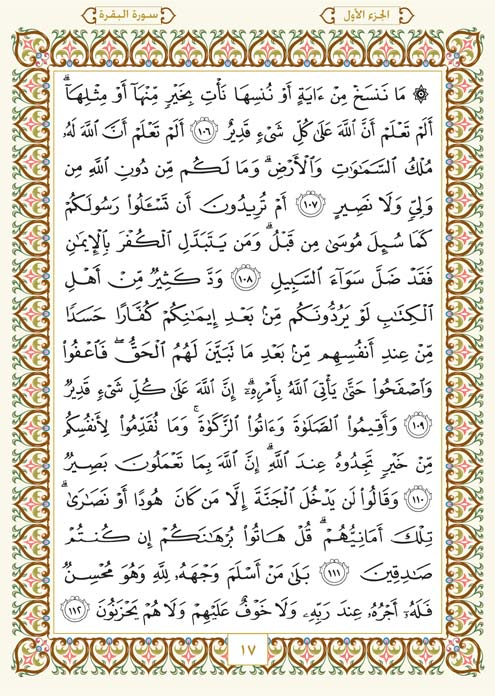 الجزء الأول
سورة البقرة
۞ مَا نَنسَخْ مِنْ ءَايَةٍ أَوْ نُنسِهَا نَأْتِ بِخَيْرٍ مِّنْهَآ أَوْ مِثْلِهَآۗ
أَلَمْ تَعْلَمْ أَنَّ ٱللَّهَ عَلَىٰ كُلِّ شَىْءٍ قَدِيرٌ ١٠٦ أَلَمْ تَعْلَمْ أَنَّ ٱللَّهَ لَهُۥ
مُلْكُ ٱلسَّمَـٰوَٰتِ وَٱلْأَرْضِۗ وَمَا لَكُم مِّن دُونِ ٱللَّهِ مِن
وَلِىٍّ وَلَا نَصِيرٍ ١٠٧ أَمْ تُرِيدُونَ أَن تَسْـَٔلُوا۟ رَسُولَكُمْ
كَمَا سُئِلَ مُوسَىٰ مِن قَبْلُۗ وَمَن يَتَبَدَّلِ ٱلْكُفْرَ بِٱلْإِيمَـٰنِ
فَقَدْ ضَلَّ سَوَآءَ ٱلسَّبِيلِ ١٠٨ وَدَّ كَثِيرٌ مِّنْ أَهْلِ
ٱلْكِتَـٰبِ لَوْ يَرُدُّونَكُم مِّنۢ بَعْدِ إِيمَـٰنِكُمْ كُفَّارًا حَسَدًا
مِّنْ عِندِ أَنفُسِهِم مِّنۢ بَعْدِ مَا تَبَيَّنَ لَهُمُ ٱلْحَقُّۖ فَٱعْفُوا۟
وَٱصْفَحُوا۟ حَتَّىٰ يَأْتِىَ ٱللَّهُ بِأَمْرِهِۦٓۗ إِنَّ ٱللَّهَ عَلَىٰ كُلِّ شَىْءٍ قَدِيرٌ
١٠٩ وَأَقِيمُوا۟ ٱلصَّلَوٰةَ وَءَاتُوا۟ ٱلزَّكَوٰةَۚ وَمَا تُقَدِّمُوا۟ لِأَنفُسِكُم
مِّنْ خَيْرٍ تَجِدُوهُ عِندَ ٱللَّهِۗ إِنَّ ٱللَّهَ بِمَا تَعْمَلُونَ بَصِيرٌ
١١٠ وَقَالُوا۟ لَن يَدْخُلَ ٱلْجَنَّةَ إِلَّا مَن كَانَ هُودًا أَوْ نَصَـٰرَىٰۗ
تِلْكَ أَمَانِيُّهُمْۗ قُلْ هَاتُوا۟ بُرْهَـٰنَكُمْ إِن كُنتُمْ
صَـٰدِقِينَ ١١١ بَلَىٰ مَنْ أَسْلَمَ وَجْهَهُۥ لِلَّهِ وَهُوَ مُحْسِنٌ
فَلَهُۥٓ أَجْرُهُۥ عِندَ رَبِّهِۦ وَلَا خَوْفٌ عَلَيْهِمْ وَلَا هُمْ يَحْزَنُونَ ١١٢
١٧